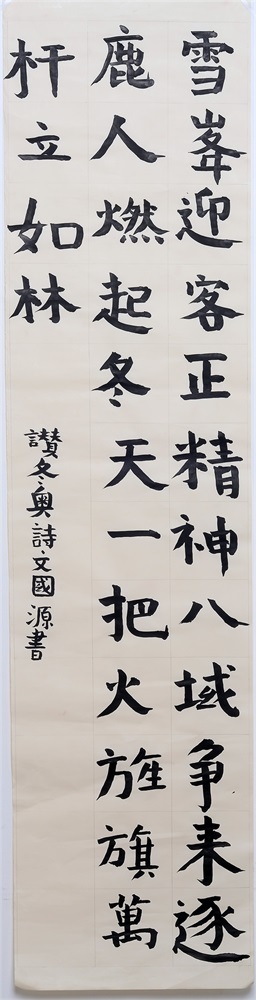 雪峯迎客正精神八域争来逐
鹿人燃起冬天一把火旌旗萬
杆立如林
讃冬奧詩文國源書